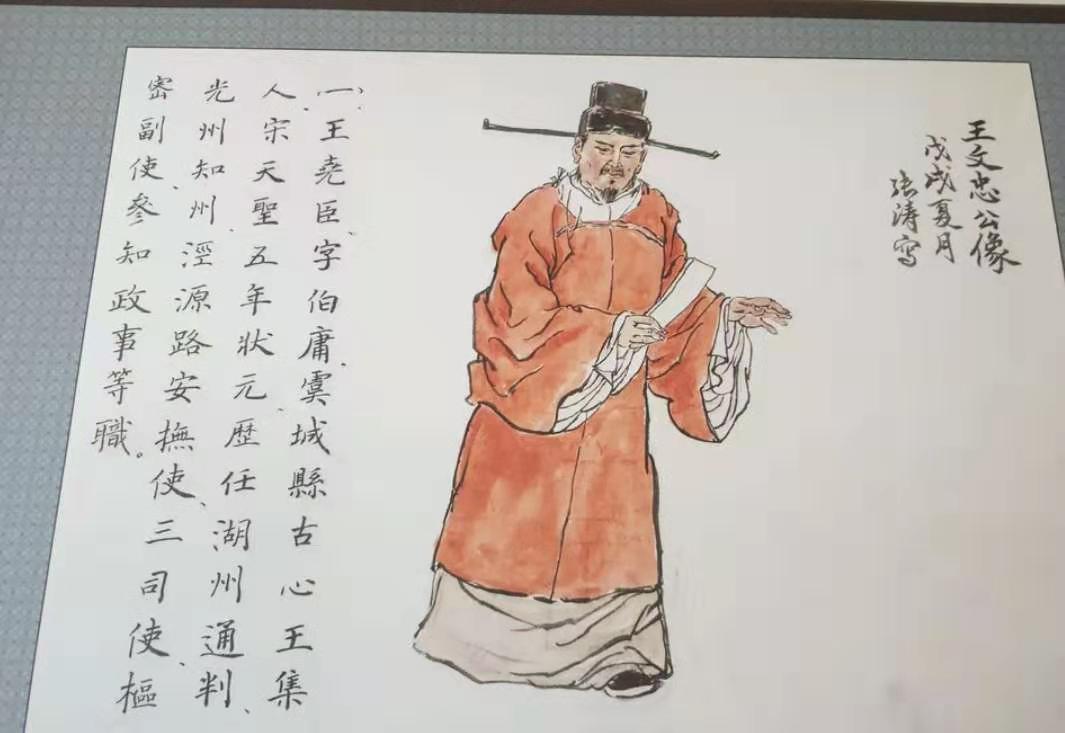 王文忠公像
戊戌夏月
张涛写
一、王堯臣、字伯庸、虞城縣古心王集
人、宋天聖五年状元、歷任湖州通判、
光州知州、涇源路安撫使、三司使、樞
密副使、參知政事等職。